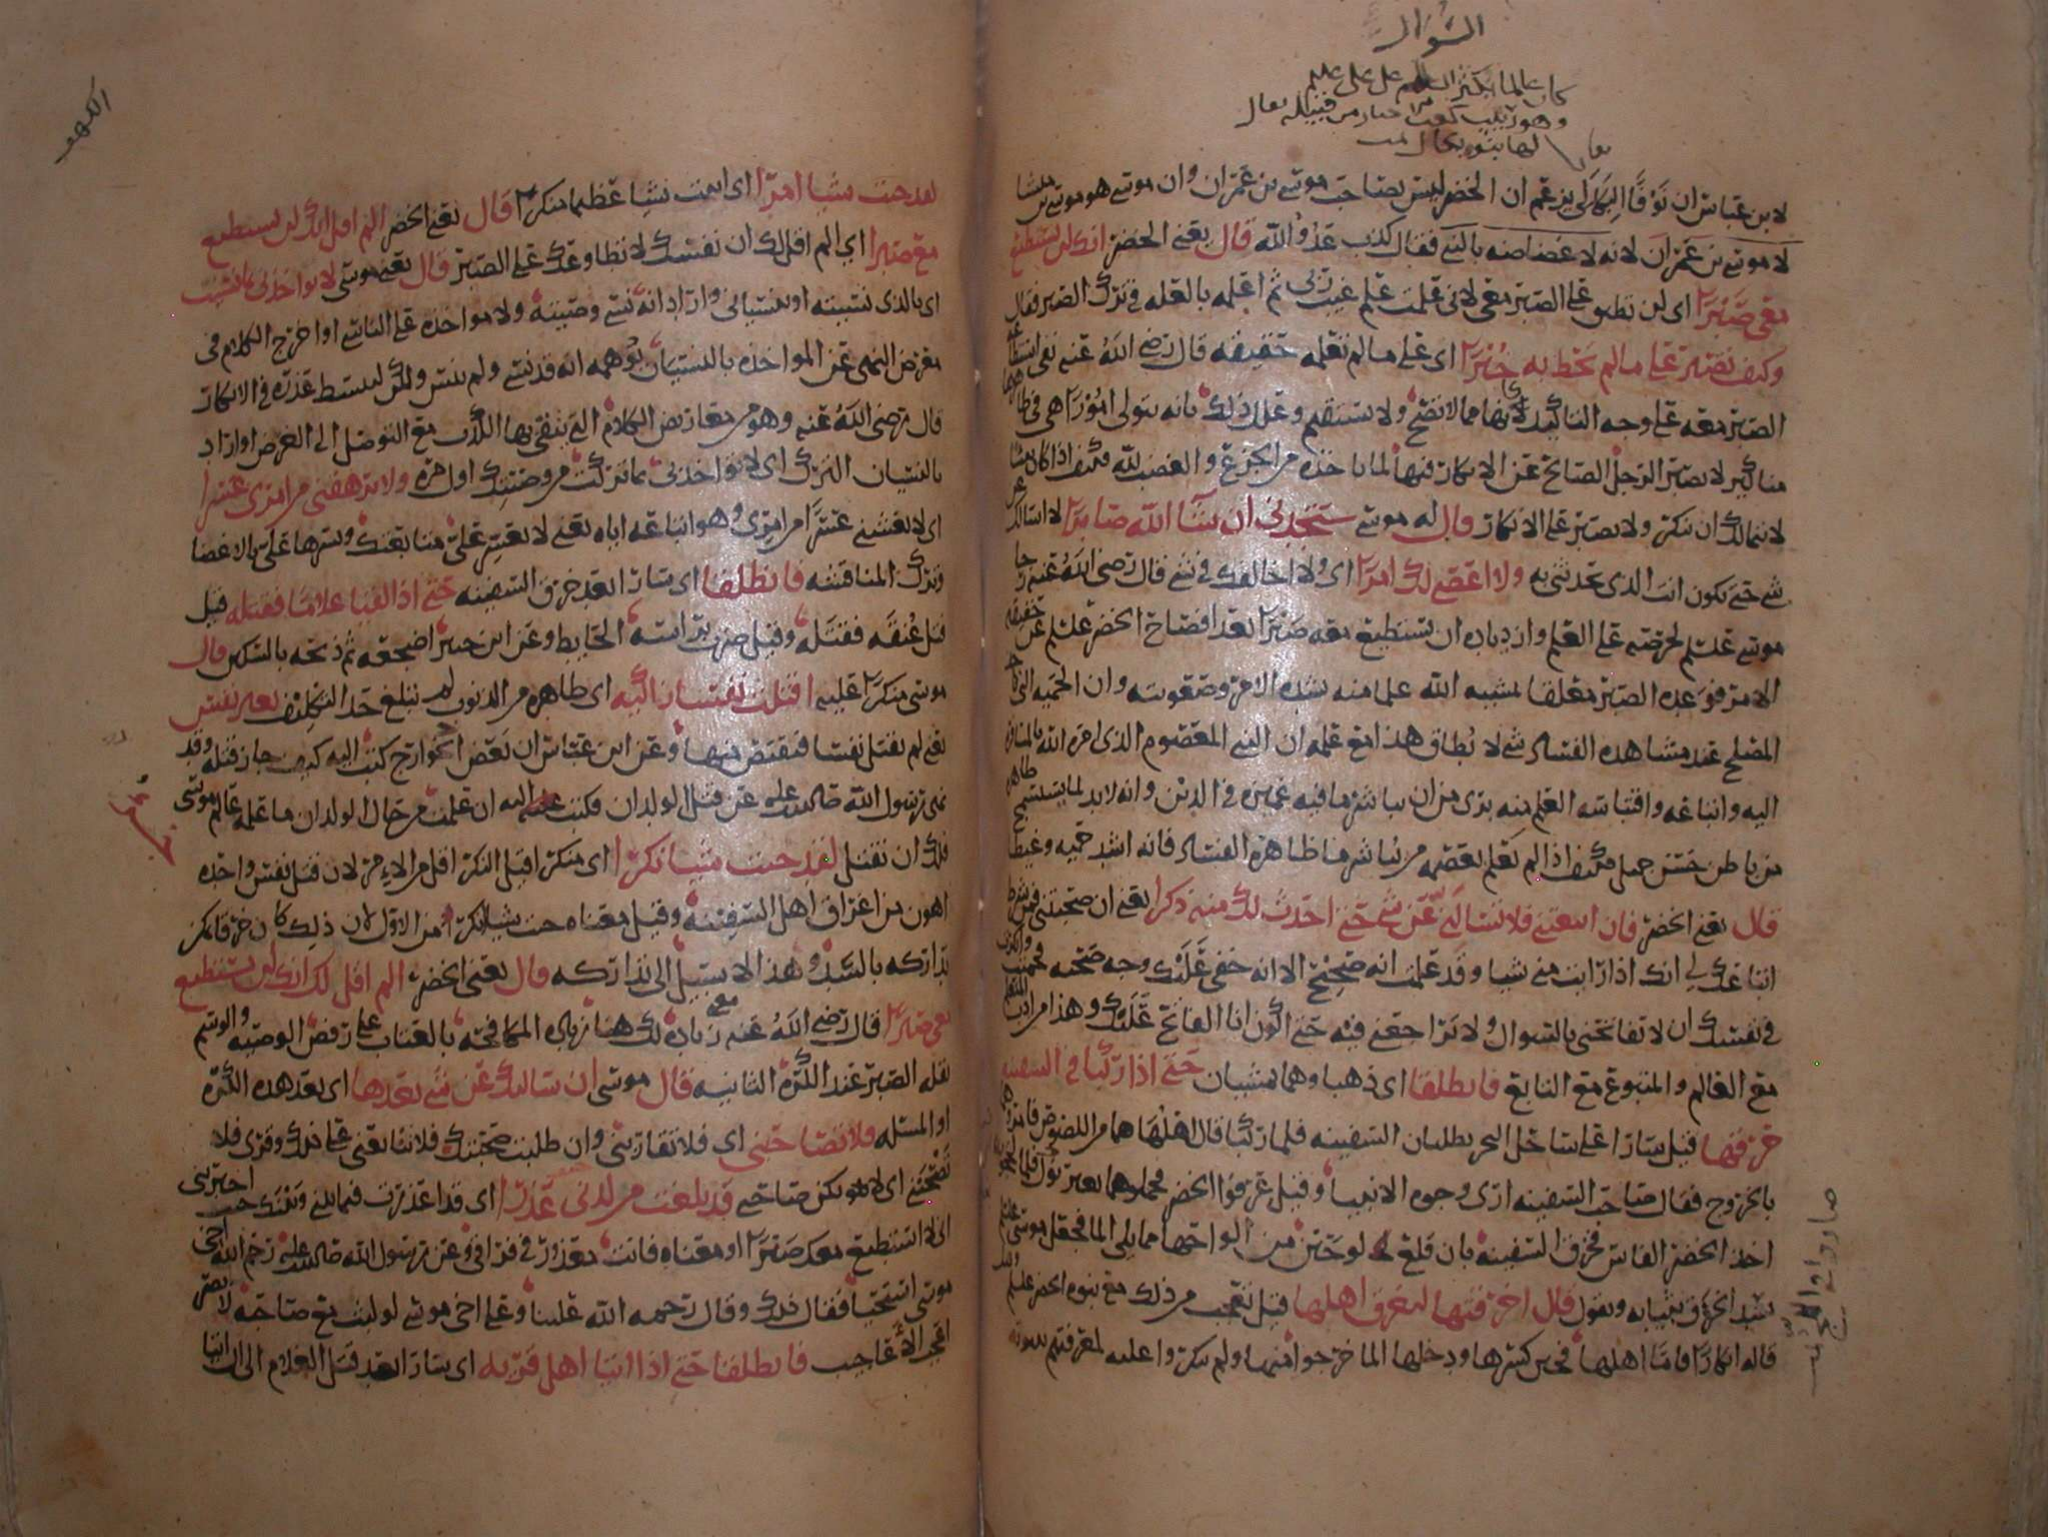 السؤال
كان عالما
وهو
لابن عباس ان نوفا البكالي يزعم ان الخضر ليس بصاحب موسى بن عمران وان موسى هو موسى بن ميشا
لا موسى بن عمران لانه لا غضاضة بالنبي فقال كذب عدو الله قال يعني الخضر انك لن تستطيع
معي صبرا اي لن تطيق على الصبر معي لاني علمت علم غيب ربي ثم اعلمه بالعلة في ترك الصبر فقال
وكيف تصبر على ما لم تحط به خبرا اي على ما لم تعلمه حقيقة قال رضي الله عنه نفى استطاعة
الصبر معه على وجه التاكيد كانها مما لا تصح ولا تستقيم وعلل ذلك بانه يتولى امورا هي في ظاهرها
مناكير لا يصبر الرجل الصالح عن الانكار فيها لما ياخذه من الجزع والغضب لله فكيف اذا كان نبيا
لا يتمالك ان ينكر ولا يصبر على الانكار قال له موسى ستجدني ان شا الله صابرا لا اسالك عن
شي حتى تكون انت الذي تحدثني به ولا اعصي لك امرا اي ولا اخالفك في شي قال رضي الله عنه رجا
موسى علسلم لحرصه على العلم وازدياده ان يستطيع معه صبرا بعد افصاح الخضر علسلم عن حقيقة
الامر فوعده الصبر معلقا بمشية الله علما منه بشدة الامر وصعوبته وان الحمية التي
المصلح عند مشاهدة الفساد شي لا يطاق هذا مع علمه ان النبي المعصوم الذي امره الله بالمسافرة
اليه واتباعه واقتباسه العلم منه بري من ان يباشر ما فيه غميزة في الدين وانه لا بد لما يستسمج ظاهره
من باطن حسن جميل فكيف اذا لم يعلم بعصمة من يباشر ما ظاهره الفساد فانه اشد حمية وغيظا
قال يعني الخضر فان اتبعتني فلا تسالني عن شي حتى احدث لك منه ذكرا يعني ان صحبتني فمن شرط
اتباعك لي انك اذا رايت مني شيا وقد علمت انه صحيح الا انه خفي عليك وجه صحته فحميت وانكرت
في نفسك ان لا تفاتحني بالسوال ولا تراجعني فيه حتى اكون انا الفاتح عليك وهذا من ادب المتعلم
مع العالم والمتبوع مع التابع فانطلقا اي ذهبا وهما يمشيان حتى اذا ركبا في السفينة
خرقها قيل سارا على ساحل البحر يطلبان السفينة فلما ركبا قال اهلها هما من اللصوص فامروهما
بالخروج فقال صاحب السفينة ارى وجوه الانبيا وقيل عرفوا الخضر فحملوهما بغير نول فلما
اخذ الخضر الفاس فخرق السفينة بان قلع لوحين من الواحها مما يلي الما فجعل موسى علسلم
يسد الخرق بثيابه ويقول قال اخرقتها لتغرق اهلها قيل تعجب من ذلك مع نبوة الخضر علسلم
قاله انكارا فاما اهلها فحين كسرها ودخلها الما خرجوا منها ولم ينكروا عليه لمعرفتهم بنبوته
الكهف
لقد جئت شيا امرا اي اتيت شيا عظيما منكرا قال يعني الخضر الم اقل انك لن تستطيع
معي صبرا اي الم اقل لك ان نفسك لا تطاوعك على الصبر قال يعني موسى لا تواخذني بما نسيت
اي بالذي نسيته او بنسياني واراد انه نسي وصيته ولا مواخذة على الناسي او اخرج الكلام في
معرض النهي عن المواخذة بالنسيان يوهمه انه قد نسي ولم ينس ولكن ليبسط عذره في الانكار
قال رضي الله عنه وهو من معاريض الكلام التي يتقى بها الكذب مع التوصل الى الغرض او اراد
بالنسيان الترك اي لا تواخذني بما تركت من وصيتك اول مرة ولا ترهقني من امري عسرا
اي لا تغشني عسرا من امري وهو اتباعه اياه يعني لا تعسر علي متابعتك ويسرها علي بالاغضا
وترك المناقشة فانطلقا اي سارا بعد خرق السفينة حتى اذا لقيا غلاما فقتله قيل
فتل عنقه فقتله وقيل ضرب براسه الحايط وعن ابن جبير اضجعه ثم ذبحه بالسكين قال
موسى منكرا عليه اقتلت نفسا زاكيه اي طاهرة من الذنوب لم تبلغ حد التكليف بغير نفس
يعني لم تقتل نفسا فتقتص منها وعن ابن عباس ان بعض الخوارج كتب اليه كيف جاز قتله وقد
نهى رسول الله صلالله عله عن قتل الولدان فكتب اليه ان علمت من حال الولدان ما علمه عالم موسى
فلك ان تقتل لقد جئت شيا نكرا اي منكرا قيل النكر اقل من الامر لان قتل نفس واحدة
اهون من اغراق اهل السفينة وقيل معناه جئت شيا انكر من الاول لان ذلك كان خرقا يمكن
تداركه بالسد وهذا لا سبيل الى تداركه قال يعني الخضر الم اقل لك انك لن تستطيع
معي صبرا قال رضي الله عنه معنى زيادة لك هنا زيادة المكافحة بالعتاب على رفض الوصية والوسم
بقلة الصبر عند الكرة الثانية قال موسى ان سالتك عن شي بعدها اي بعد هذه الكرة
او المسلة فلا تصاحبني اي فلا تقاربني وان طلبت صحبتك فلا تتابعني على ذلك وقري فلا
تصحبني اي لا تكن صاحبي قد بلغت من لدني عذرا اي قد اعذرت فيما بيني وبينك حيث اخبرتني
اني لا استطيع معك صبرا او معناه فانت معذور في فراقي وعن رسول الله صلالله عله رحم الله اخي
موسى استحيا فقال ذلك وقال رحمة الله علينا وعلى اخي موسى لو لبث مع صاحبه لابصر
اعجب الاعاجيب فانطلقا حتى اذا اتيا اهل قرية اي سارا بعد قتل الغلام الى ان اتيا